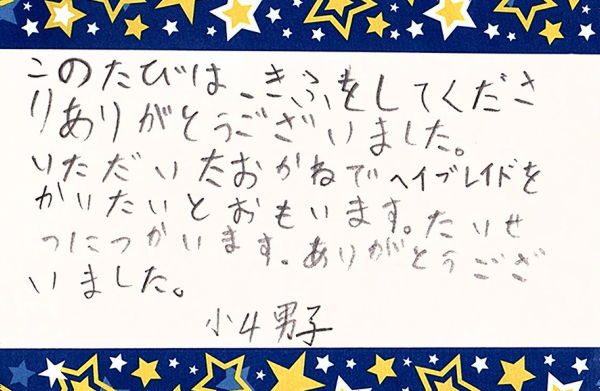 このたびは、きふをしてくださ
りありがとうございました。
いただいたおかねでヘイブレイドを
かいたいとおもいます。たいせ
つにつかいます。ありがとうござ
いました。
小4男子